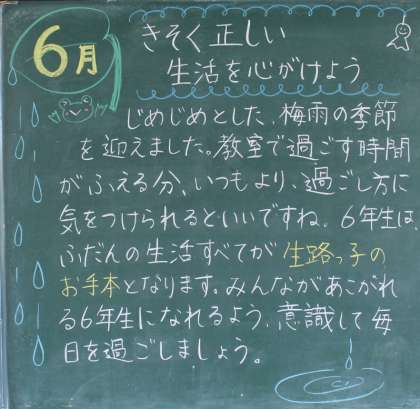 6月
きそく正しい
生活を心がけよう
じめじめとした、梅雨の季節
を迎えました。教室で過ごす時間
がふえる分、いつもより、過ごし方に
気をつけられるといいですね。6年生は、
ふだんの生活すべてが生路っ子の
お手本となります。みんながあこがれ
る6年生になれるよう、意識して毎
日を過ごしましょう。